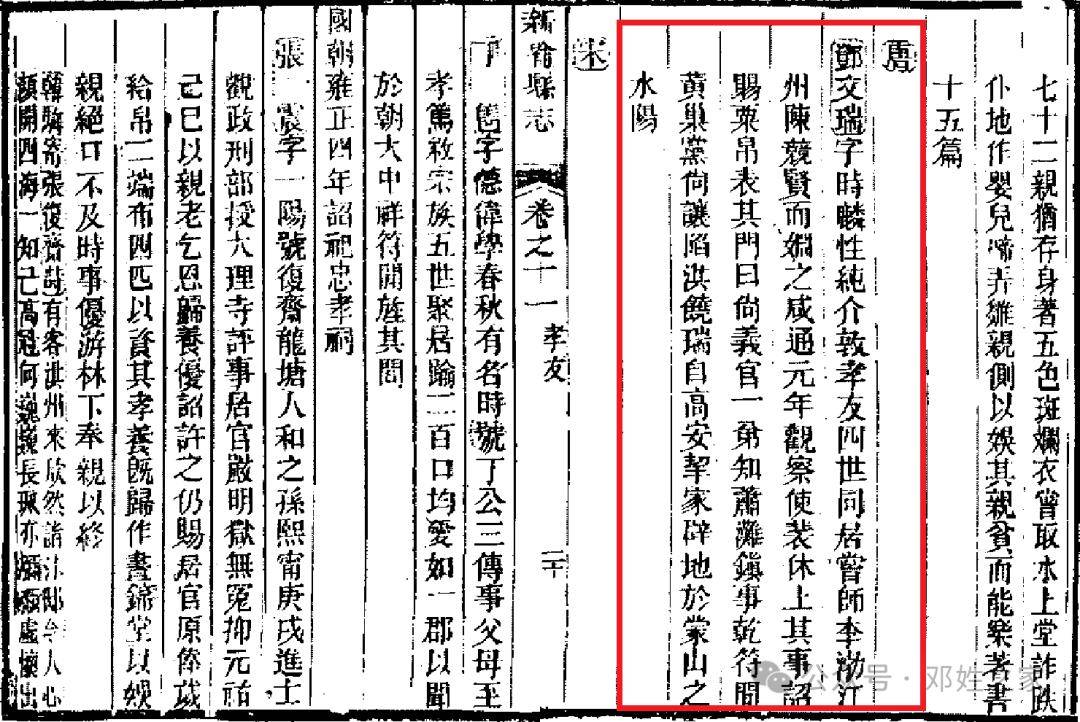 七十二親猶存身著五色斑斕衣嘗取水上堂詐跌
仆地作嬰兒啼弄雛親側以娛其親貧而能樂著書
十五篇
唐
鄧文瑞字時麟性純介敦孝友四世同居嘗師李渤江
州陳兢賢而婣之咸通元年觀察使裴休上其事詔
賜粟帛表其門曰尙義官一弟知蕭灘鎭事乾符間
黃巢黨尙讓陷洪饒瑞自高安挈家辟地於蒙山之
水陽
宋
新喻縣志 卷之十一 孝友 二十
丁雋字德偉學春秋有名時號丁公三傳事父母至
孝篤敘宗族五世聚居踰二百口均愛如一郡以聞
於朝大中祥符間旌其閭
國朝雍正四年詔祀忠孝祠
張一震字一陽號復齋龍塘人和之孫熙甯庚戌進士
觀政刑部授大理寺評事居官嚴明獄無冤抑元祐
己巳以親老乞恩歸養優詔許之仍賜居官原俸歲
給帛二端布四匹以資其孝養既歸作晝錦堂以娛
親絕口不及時事優游林下奉親以終
寄張復齋詩有客洪州來欣然詣
顏開四海一知己高冠何巍巍長 虛懷出
公众号·邓姓 家